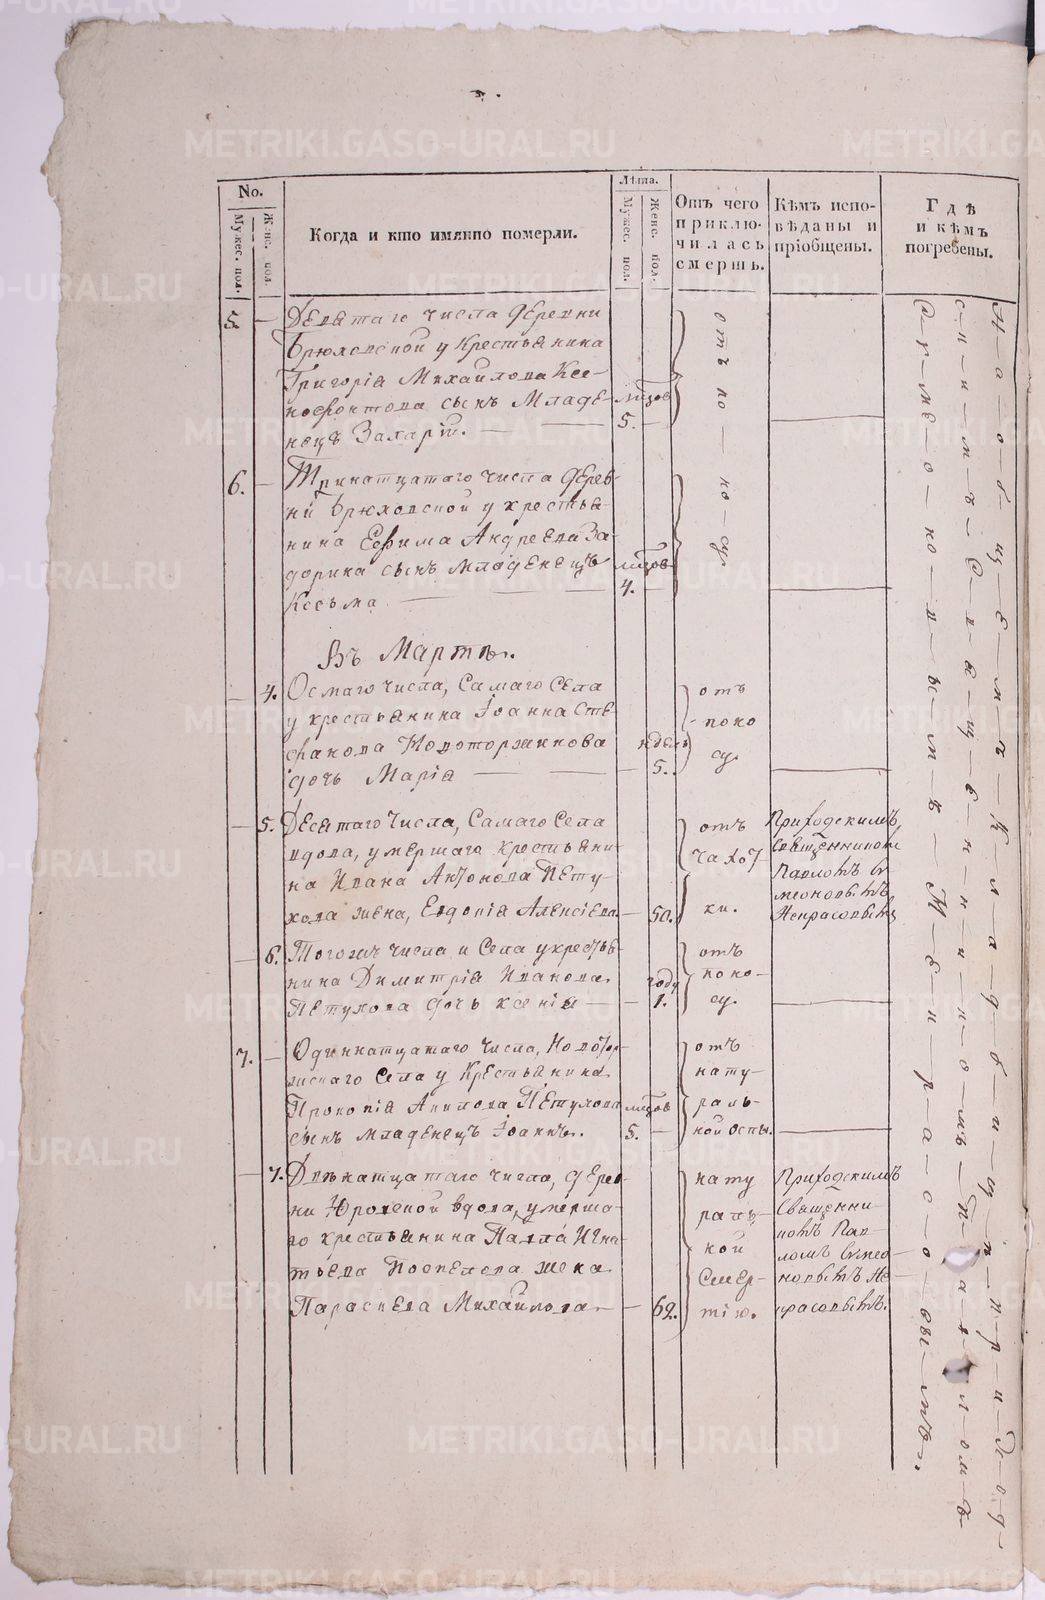 METRIKI.GASO-URAL.RU
No.
Мужес. пол.
Женс. пол.
Когда и кто имянно померли.
Лѣта.
Мужес. пол.
Женс. пол.
Отъ чего
приклю-
чилась
смерть.
Кѣмъ испо-
вѣданы и
пріобщены.
Гдѣ
и кѣмъ
погребены.
5. — Девятаго числа деревни
Брюховской у крестьянина
Григорія Михайлова Ксе-
нофонтова сынъ младе-
нецъ Захарій. — —
5. —
отъ по — но — су
6. — Тринатцатаго числа дерев-
ни Брюховской у крестья-
нина Ефима Андреева За-
дорина сынъ младенецъ
Косьма — — —
4. —
Въ Мартѣ.
— 4. Осмаго числа, самаго села
у крестьянина Іоанна Сте-
фанова Новоторжинова
дочь Марія — —
недель
— 5.
отъ
поно
су.
— 5. Десятаго числа, самаго села
вдова, умершаго крестьяни-
на Ивана Антонова Пету-
хова жена, Евдокія Алексіева
— 50.
отъ
чахот-
ки.
Приходскимъ
священникомъ
Павломъ Си
меоновымъ
Некрасовымъ
— 6. Тогожъ числа и села у крестья-
нина Димитрія Иванова
Петухова дочь Ксенія —
году
— 1.
отъ
поно-
су.
7. — Одиннатцатаго числа, Новотор-
жскаго села у крестьянина
Прокопія Петухова
сынъ младенецъ Іоаннъ.
5. —
отъ
нату-
раль-
ной оспы.
— 7. Двѣнатцатаго числа, дерев-
ни вдова, умерша-
го крестьянина Павла Игна-
тьева Поспелова жена
Параскева Михайлова —
— 62.
нату
раль-
ной
смер-
тію.
Приходскимъ
священни-
комъ Пав-
ломъ Симео-
новымъ Не-
красовымъ.
На общемъ кладбищѣ приход-
скимъ священникомъ Павломъ
Симеоновымъ Некрасовымъ.